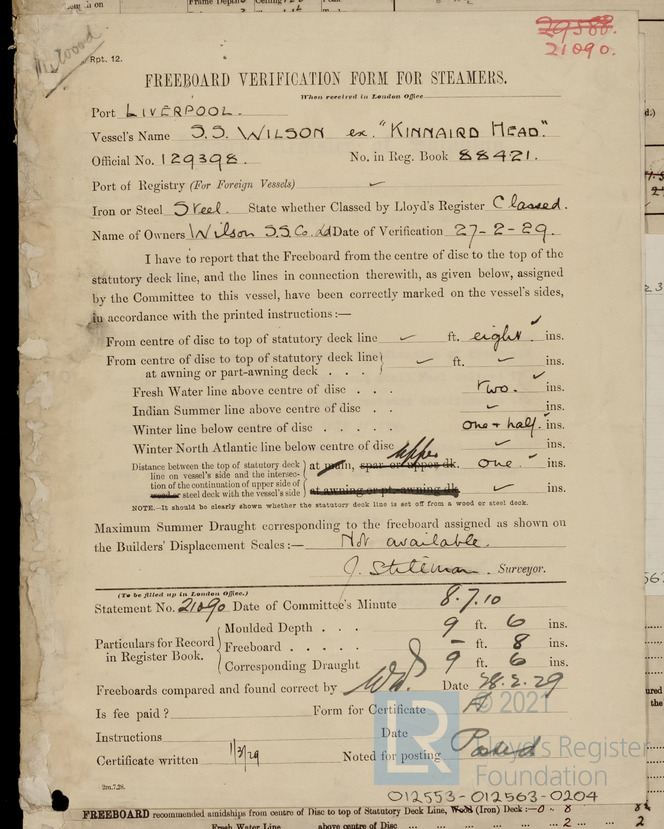 Frame Depth
Ceiling
29588.
21090.
Rpt. 12.
FREEBOARD VERIFICATION FORM FOR STEAMERS.
When received in London Office
Port LIVERPOOL.
Vessel's Name S.S. WILSON ex. "KINNAIRD HEAD."
Official No. 129398. No. in Reg. Book 88421.
Port of Registry (For Foreign Vessels) ✓
Iron or Steel Steel. State whether Classed by Lloyd's Register Classed.
Name of Owners Wilson S.S. Co. Ld Date of Verification 27-2-29.
I have to report that the Freeboard from the centre of disc to the top of the
statutory deck line, and the lines in connection therewith, as given below, assigned
by the Committee to this vessel, have been correctly marked on the vessel's sides,
in accordance with the printed instructions:—
From centre of disc to top of statutory deck line ✓ ft. eight. ✓ ins.
From centre of disc to top of statutory deck line
at awning or part-awning deck . . . ✓ ft. ✓ ins.
Fresh Water line above centre of disc . . . two. ✓ ins.
Indian Summer line above centre of disc . . ✓ ins.
Winter line below centre of disc . . . . . one + half. ✓ ins.
Winter North Atlantic line below centre of disc ✓ ins.
upper
Distance between the top of statutory deck
line on vessel's side and the intersec- at main, spar or upper dk. one. ✓ ins.
tion of the continuation of upper side of
wood or steel deck with the vessel's side at awning or pt.-awning dk ✓ ins.
NOTE.—It should be clearly shown whether the statutory deck line is set off from a wood or steel deck.
Maximum Summer Draught corresponding to the freeboard assigned as shown on
the Builders' Displacement Scales:— Not available.
J. Stileman. Surveyor.
(To be filled up in London Office.)
Statement No. 21090 Date of Committee's Minute 8.7.10
Particulars for Record
in Register Book.
Moulded Depth . . . 9 ft. 6 ins.
Freeboard . . . . . – ft. 8 ins.
Corresponding Draught 9 ft. 6 ins.
Freeboards compared and found correct by Date 28.2.29
Is fee paid? Form for Certificate A
Instructions Date
Certificate written 1/3/29 Noted for posting Posted
2m.7.28.
© 2021
LR
Lloyd's Register
Foundation
012553-012563-0204
FREEBOARD recommended amidships from centre of Disc to top of Statutory Deck Line, Wood (Iron) Deck:—0 - 8
Fresh Water Line above centre of Disc ... 2